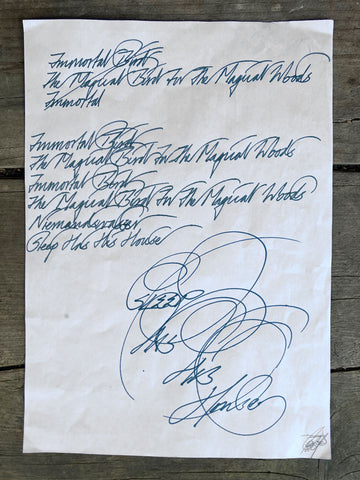 Immortal Bird
The Magical Bird In The Magical Woods
Immortal
Immortal Bird
The Magical Bird In The Magical Woods
Immortal Bird
The Magical Bird In The Magical Woods
Niemandswasser
Sleep Has His House
SLEEP
Has
His
House